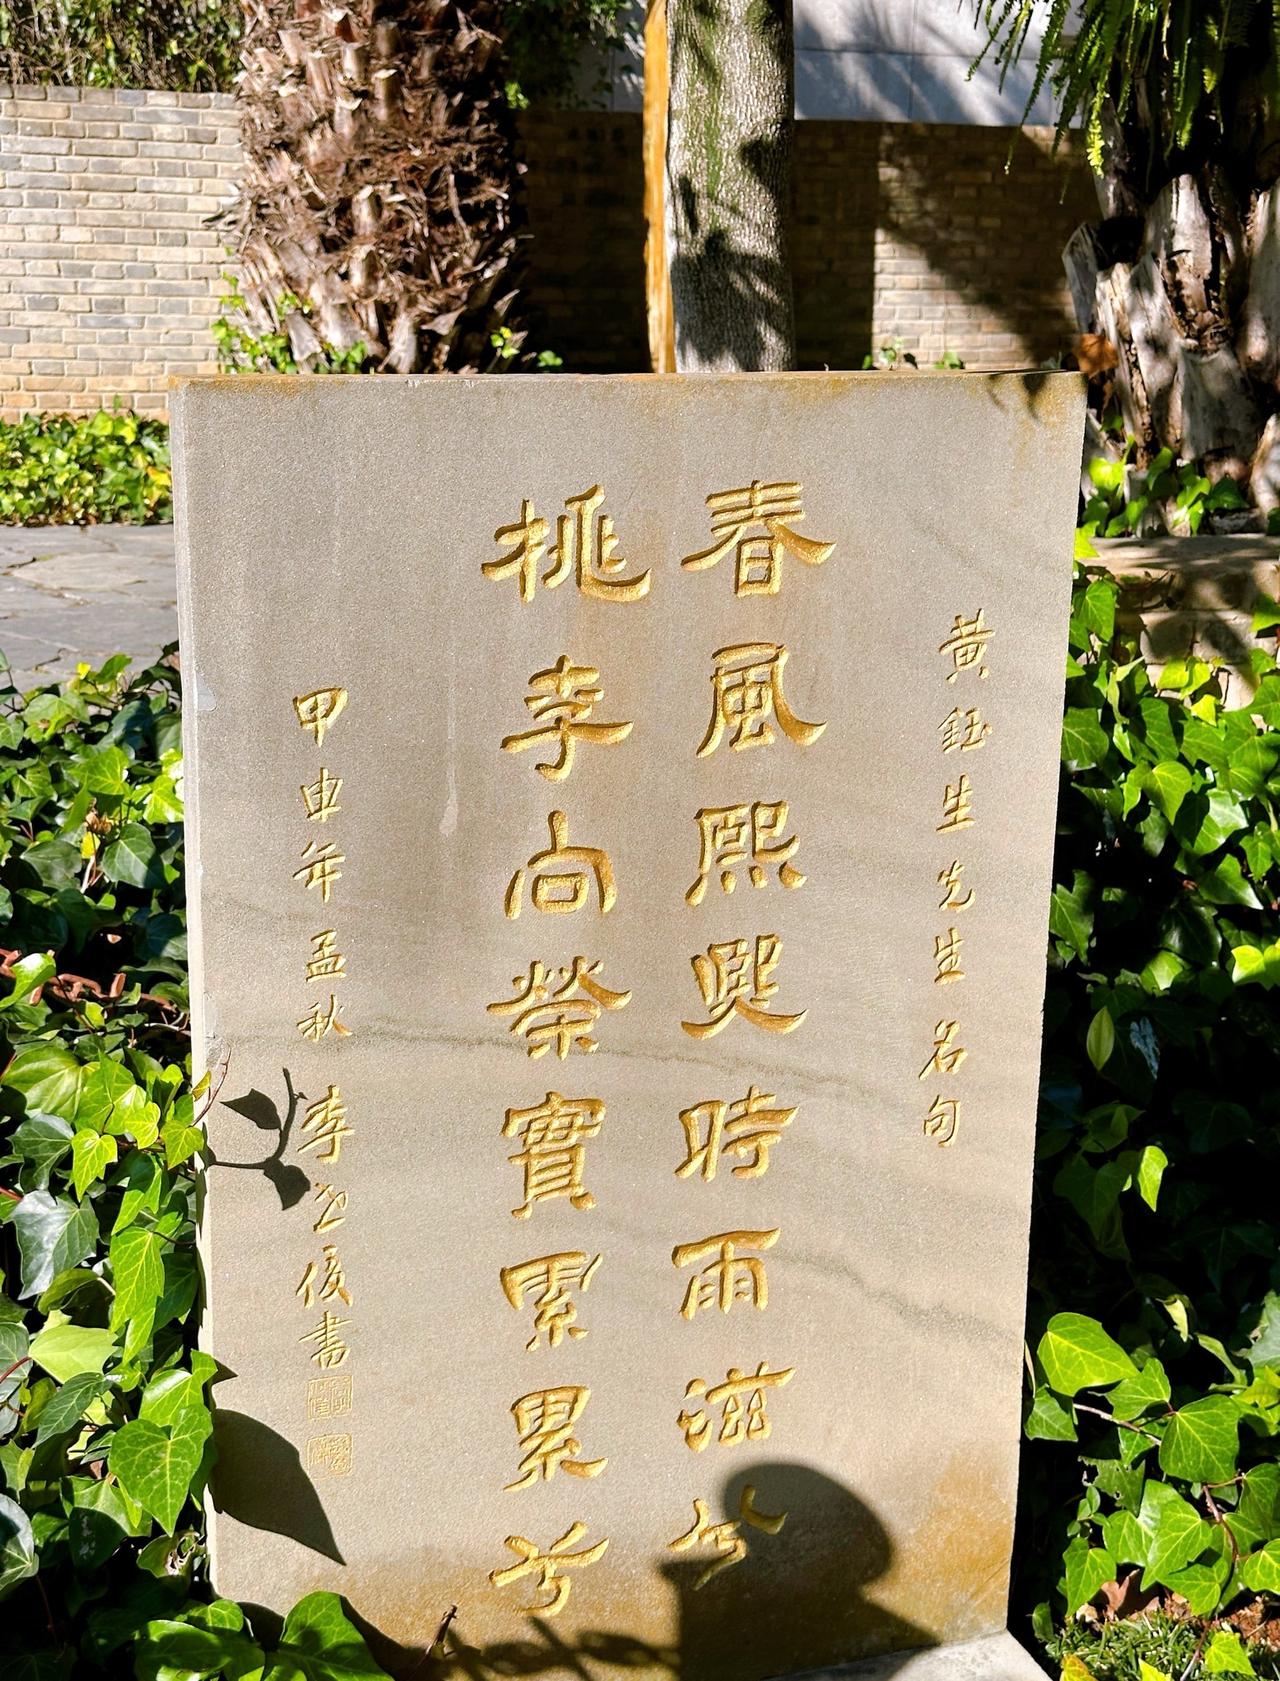 黄鈺生先生名句
春風熙熙時雨滋兮
桃李尚榮實累累兮
甲申年孟秋 李 俊書